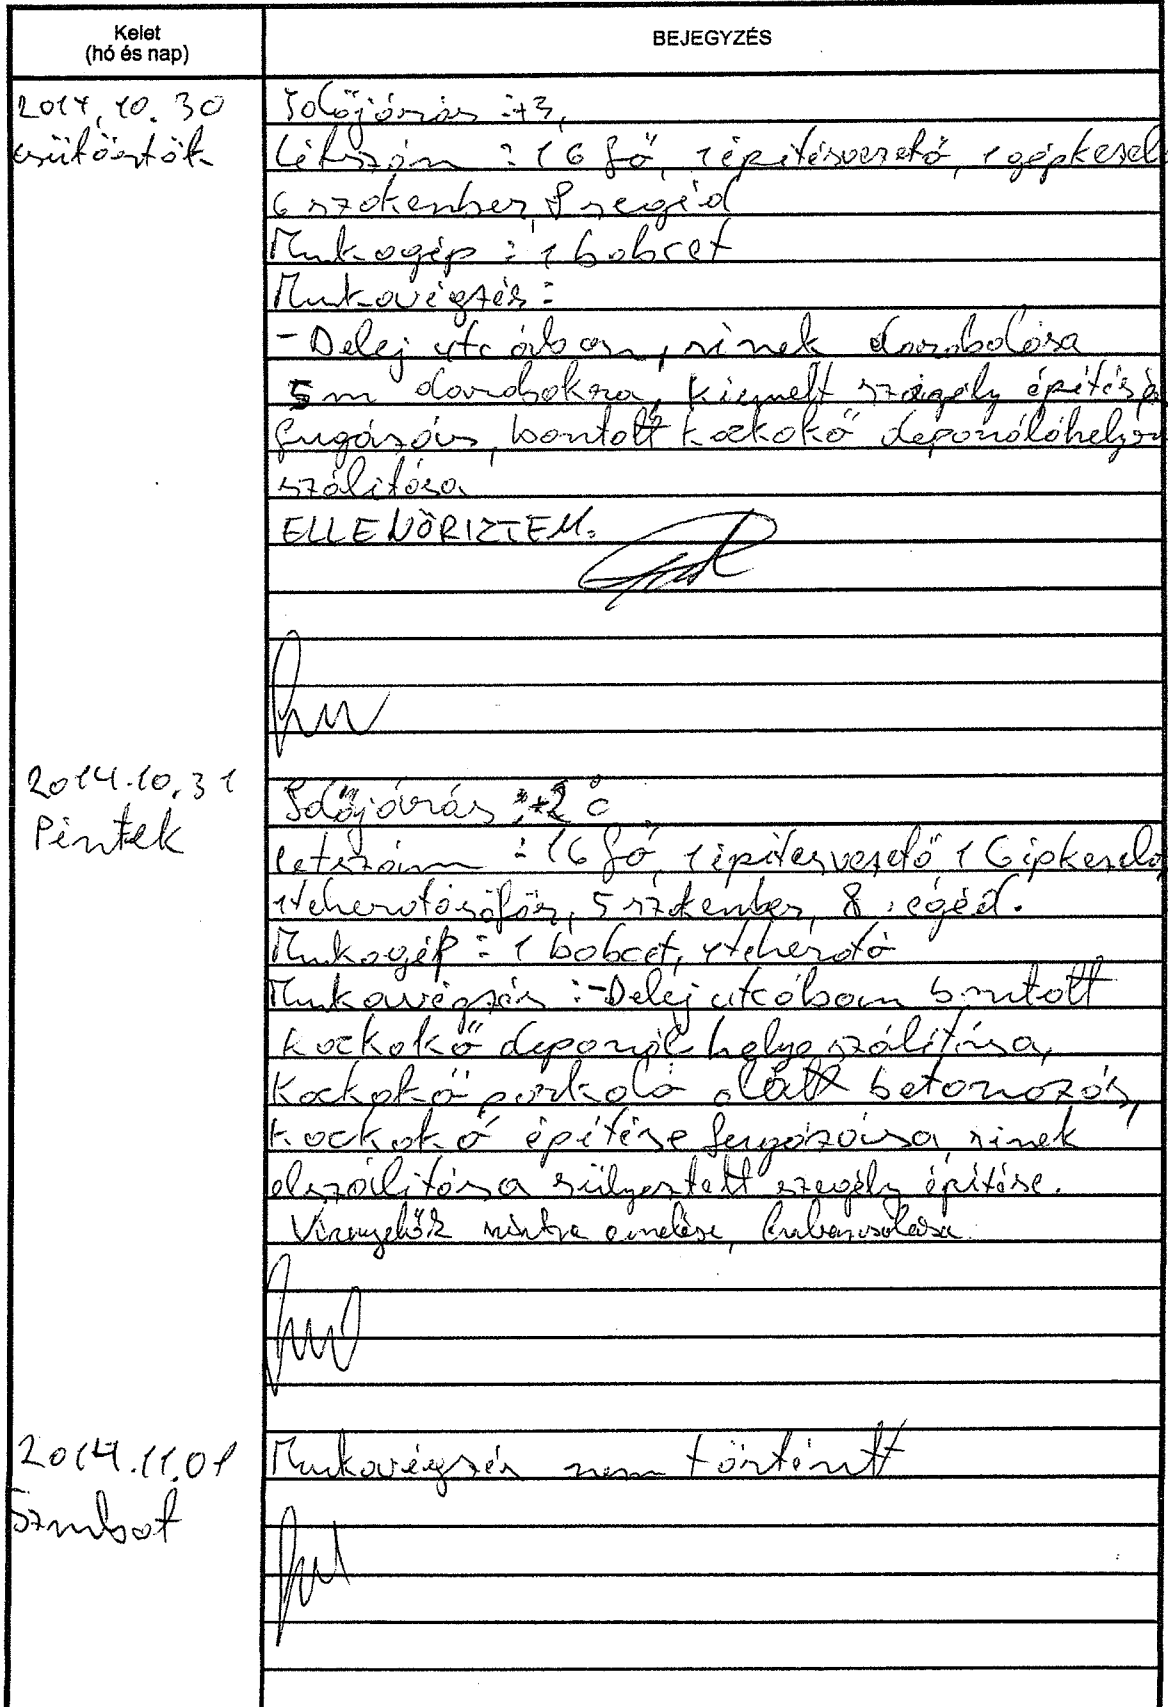 Kelet
(hó és nap)
BEJEGYZÉS
2014.10.30
csütöstök
Időjárás :+3,
Létszám : 16 fő, 1 építésvezető, 1 gépkezel
6 szakember, 8 segéd
Munkagép : 1 bobcat
Munkavégzés :
- Delej utcában, sinek darabolása
5m darabokra, kiemelt szegély építés
fugázás, bontott kockakő deponálóhelyre
szálitása
ELLENŐRIZTEM:
2014.10.31
Péntek
Időjárás :+2 °C
létszám : 16 fő, 1 építésvezető 1 Gépkezelő
1 teherotósöfőr, 5 szakember, 8 segéd.
Munkagép : 1 bobcat, 1 teherotó
Munkavégzés :-Delej utcában bontott
kockakő deponál helye szálitása,
kockakő parkoló alatt betonozás,
kockakő építése fugázása, sinek
elszálitása sülyesztett szegély építése.
Víznyelők szintre emelése,
2014.11.01
Szmbat
Munkavégzés nem történt